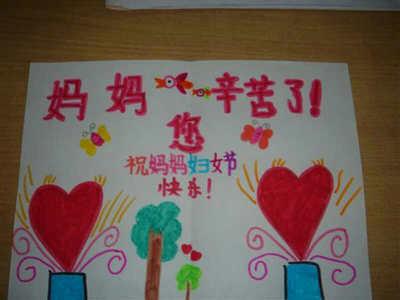 妈妈 辛苦了!
您
祝妈妈妇女节
快乐!